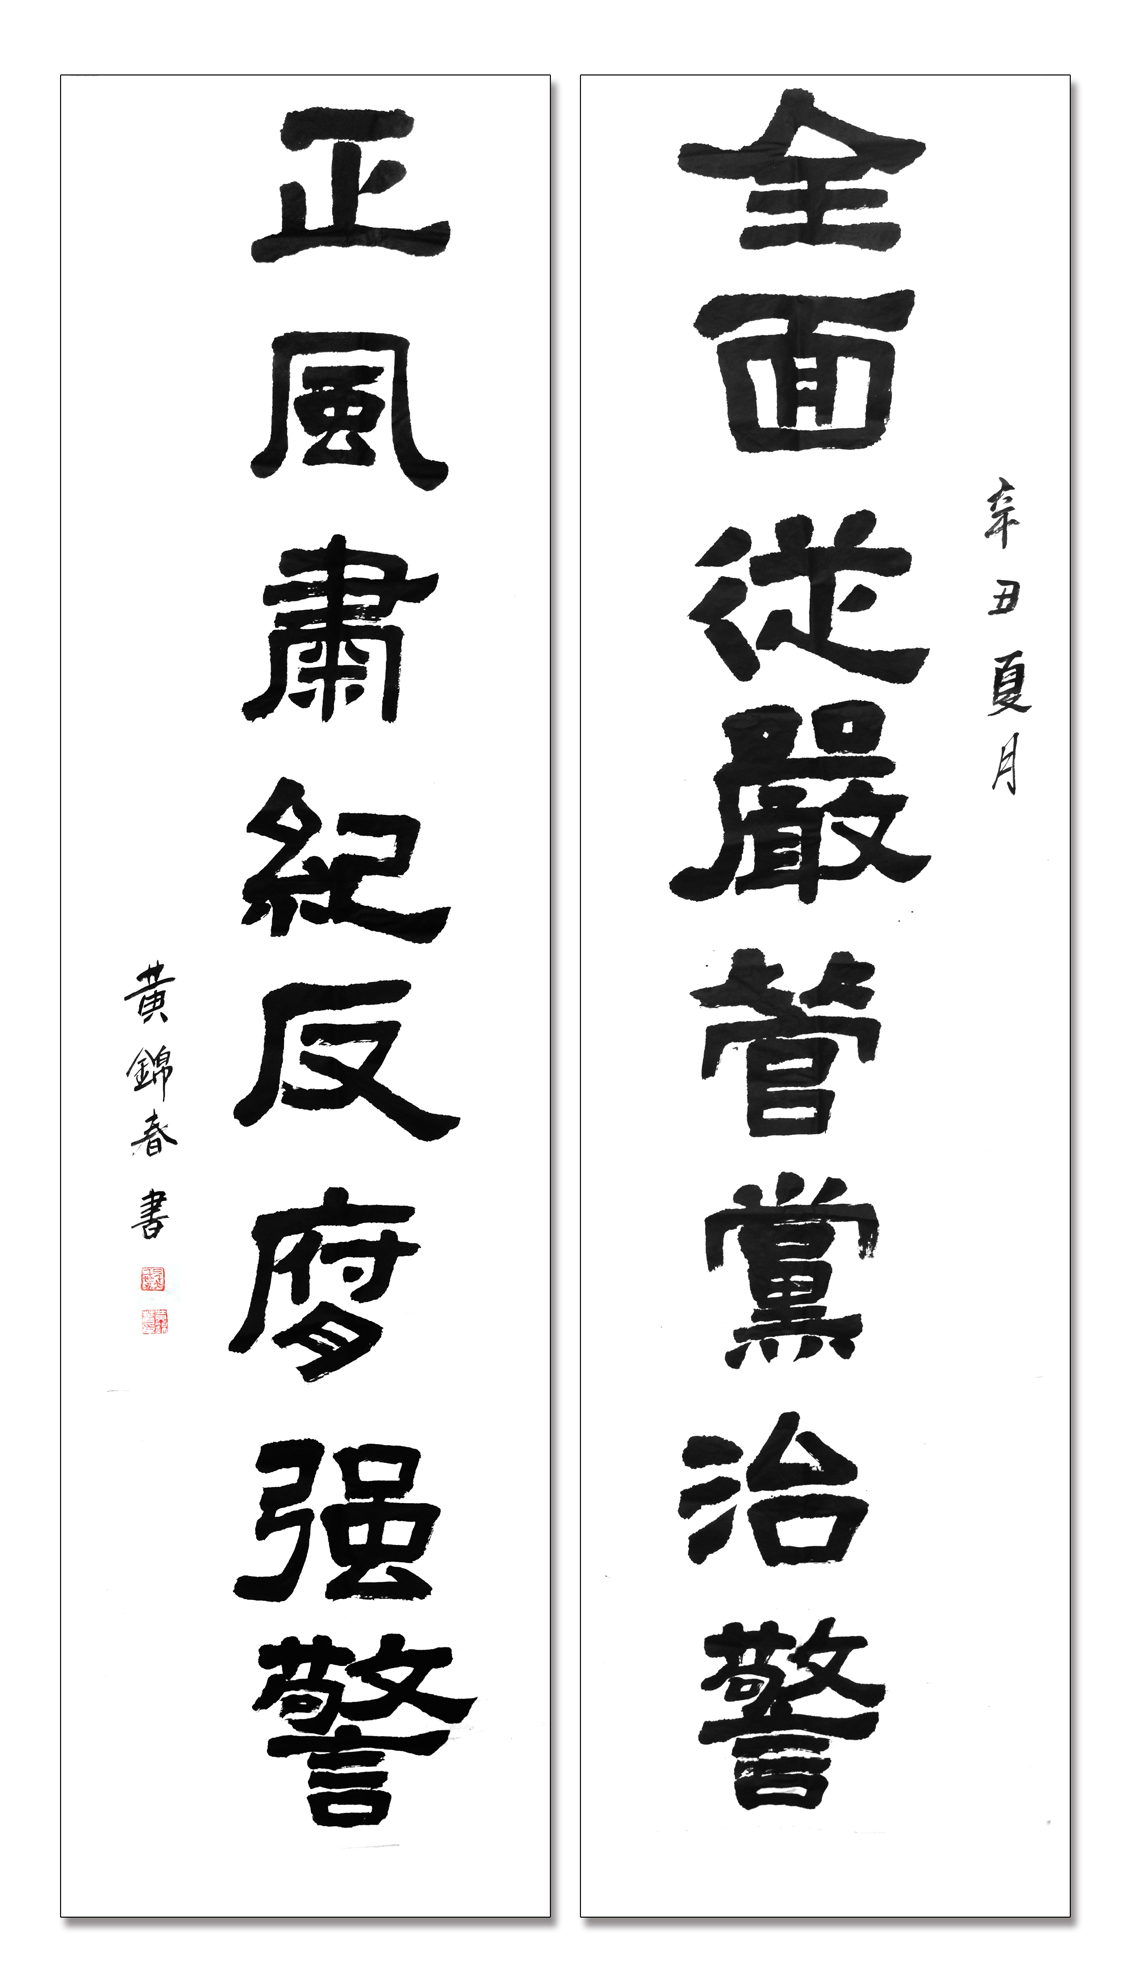 辛丑夏月
全面從嚴管黨治警
正風肅紀反腐强警
黃錦春書